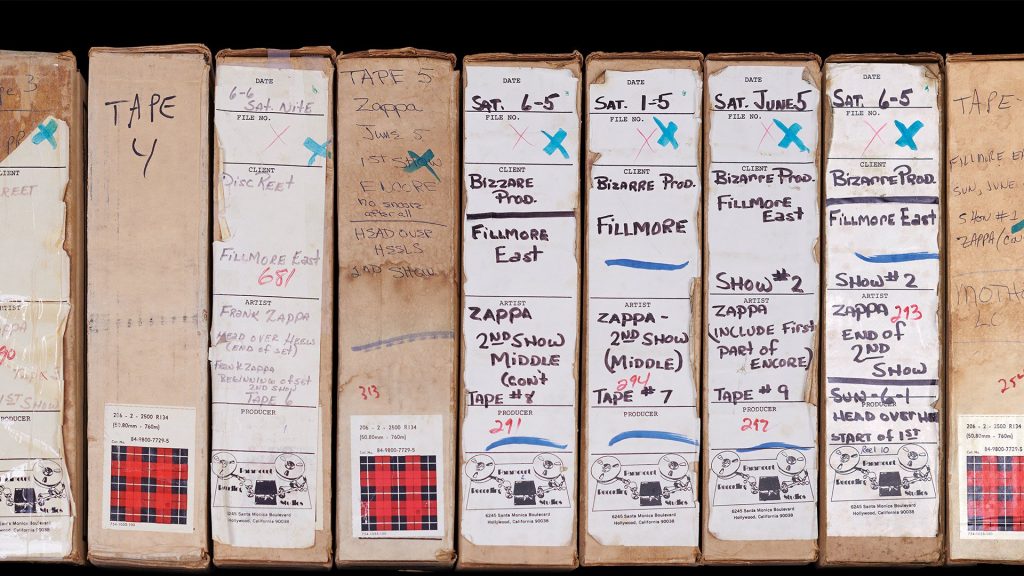 TAPE
4
206 - 2 - 2500 R134
(50.80mm - 760m)
84-9800-7729-5
DATE
6-6
SAT. NITE
FILE NO.
CLIENT
DISCREET
FILLMORE EAST
681
ARTIST
FRANK ZAPPA
HEAD OVER HEELS
(END OF SET)
FRANK ZAPPA
BEGINNING OF SET
2ND SHOW
TAPE 6
PRODUCER
Paramount
Recording Studios
6245 Santa Monica Boulevard
Hollywood, California 90038
TAPE 5
Zappa
June 5
1ST SHOW
ENCORE
no snooze
after all
2ND SHOW
313
206 - 2 - 2500 R134
(50.80mm - 760m)
84-9800-7729-5
DATE
SAT. 6-5
FILE NO.
CLIENT
BIZZARE
PROD.
FILLMORE
EAST
ARTIST
ZAPPA
2ND SHOW
MIDDLE
(CON'T
TAPE #8
PRODUCER
291
Paramount
Recording Studios
6245 Santa Monica Boulevard
Hollywood, California 90038
DATE
SAT. 1-5
FILE NO.
CLIENT
BIZARRE PROD.
FILLMORE
ARTIST
ZAPPA -
2ND SHOW
(MIDDLE)
294
TAPE #7
PRODUCER
Paramount
Recording Studios
6245 Santa Monica Boulevard
Hollywood, California 90038
DATE
SAT. JUNE 5
FILE NO.
CLIENT
BIZARRE PROD.
FILLMORE
EAST
SHOW #2
ARTIST
ZAPPA
(INCLUDE FIRST
PART OF
ENCORE)
TAPE #9
PRODUCER
292
Paramount
Recording Studios
6245 Santa Monica Boulevard
Hollywood, California 90038
DATE
SAT. 6-5
FILE NO.
CLIENT
BIZARRE PROD.
FILLMORE EAST
SHOW #2
ARTIST
ZAPPA 293
END OF
2ND
SHOW
SUN-6-1
PRODUCER
HEAD OVER
START OF 1ST
Reel 10
Paramount
Recording Studios
6245 Santa Monica Boulevard
Hollywood, California 90038
TAPE
FILLMORE
SUN, JUNE
SHOW #1
ZAPPA
206 - 2 - 2500 R134
(50.80mm - 760m)
84-9800-7729-5